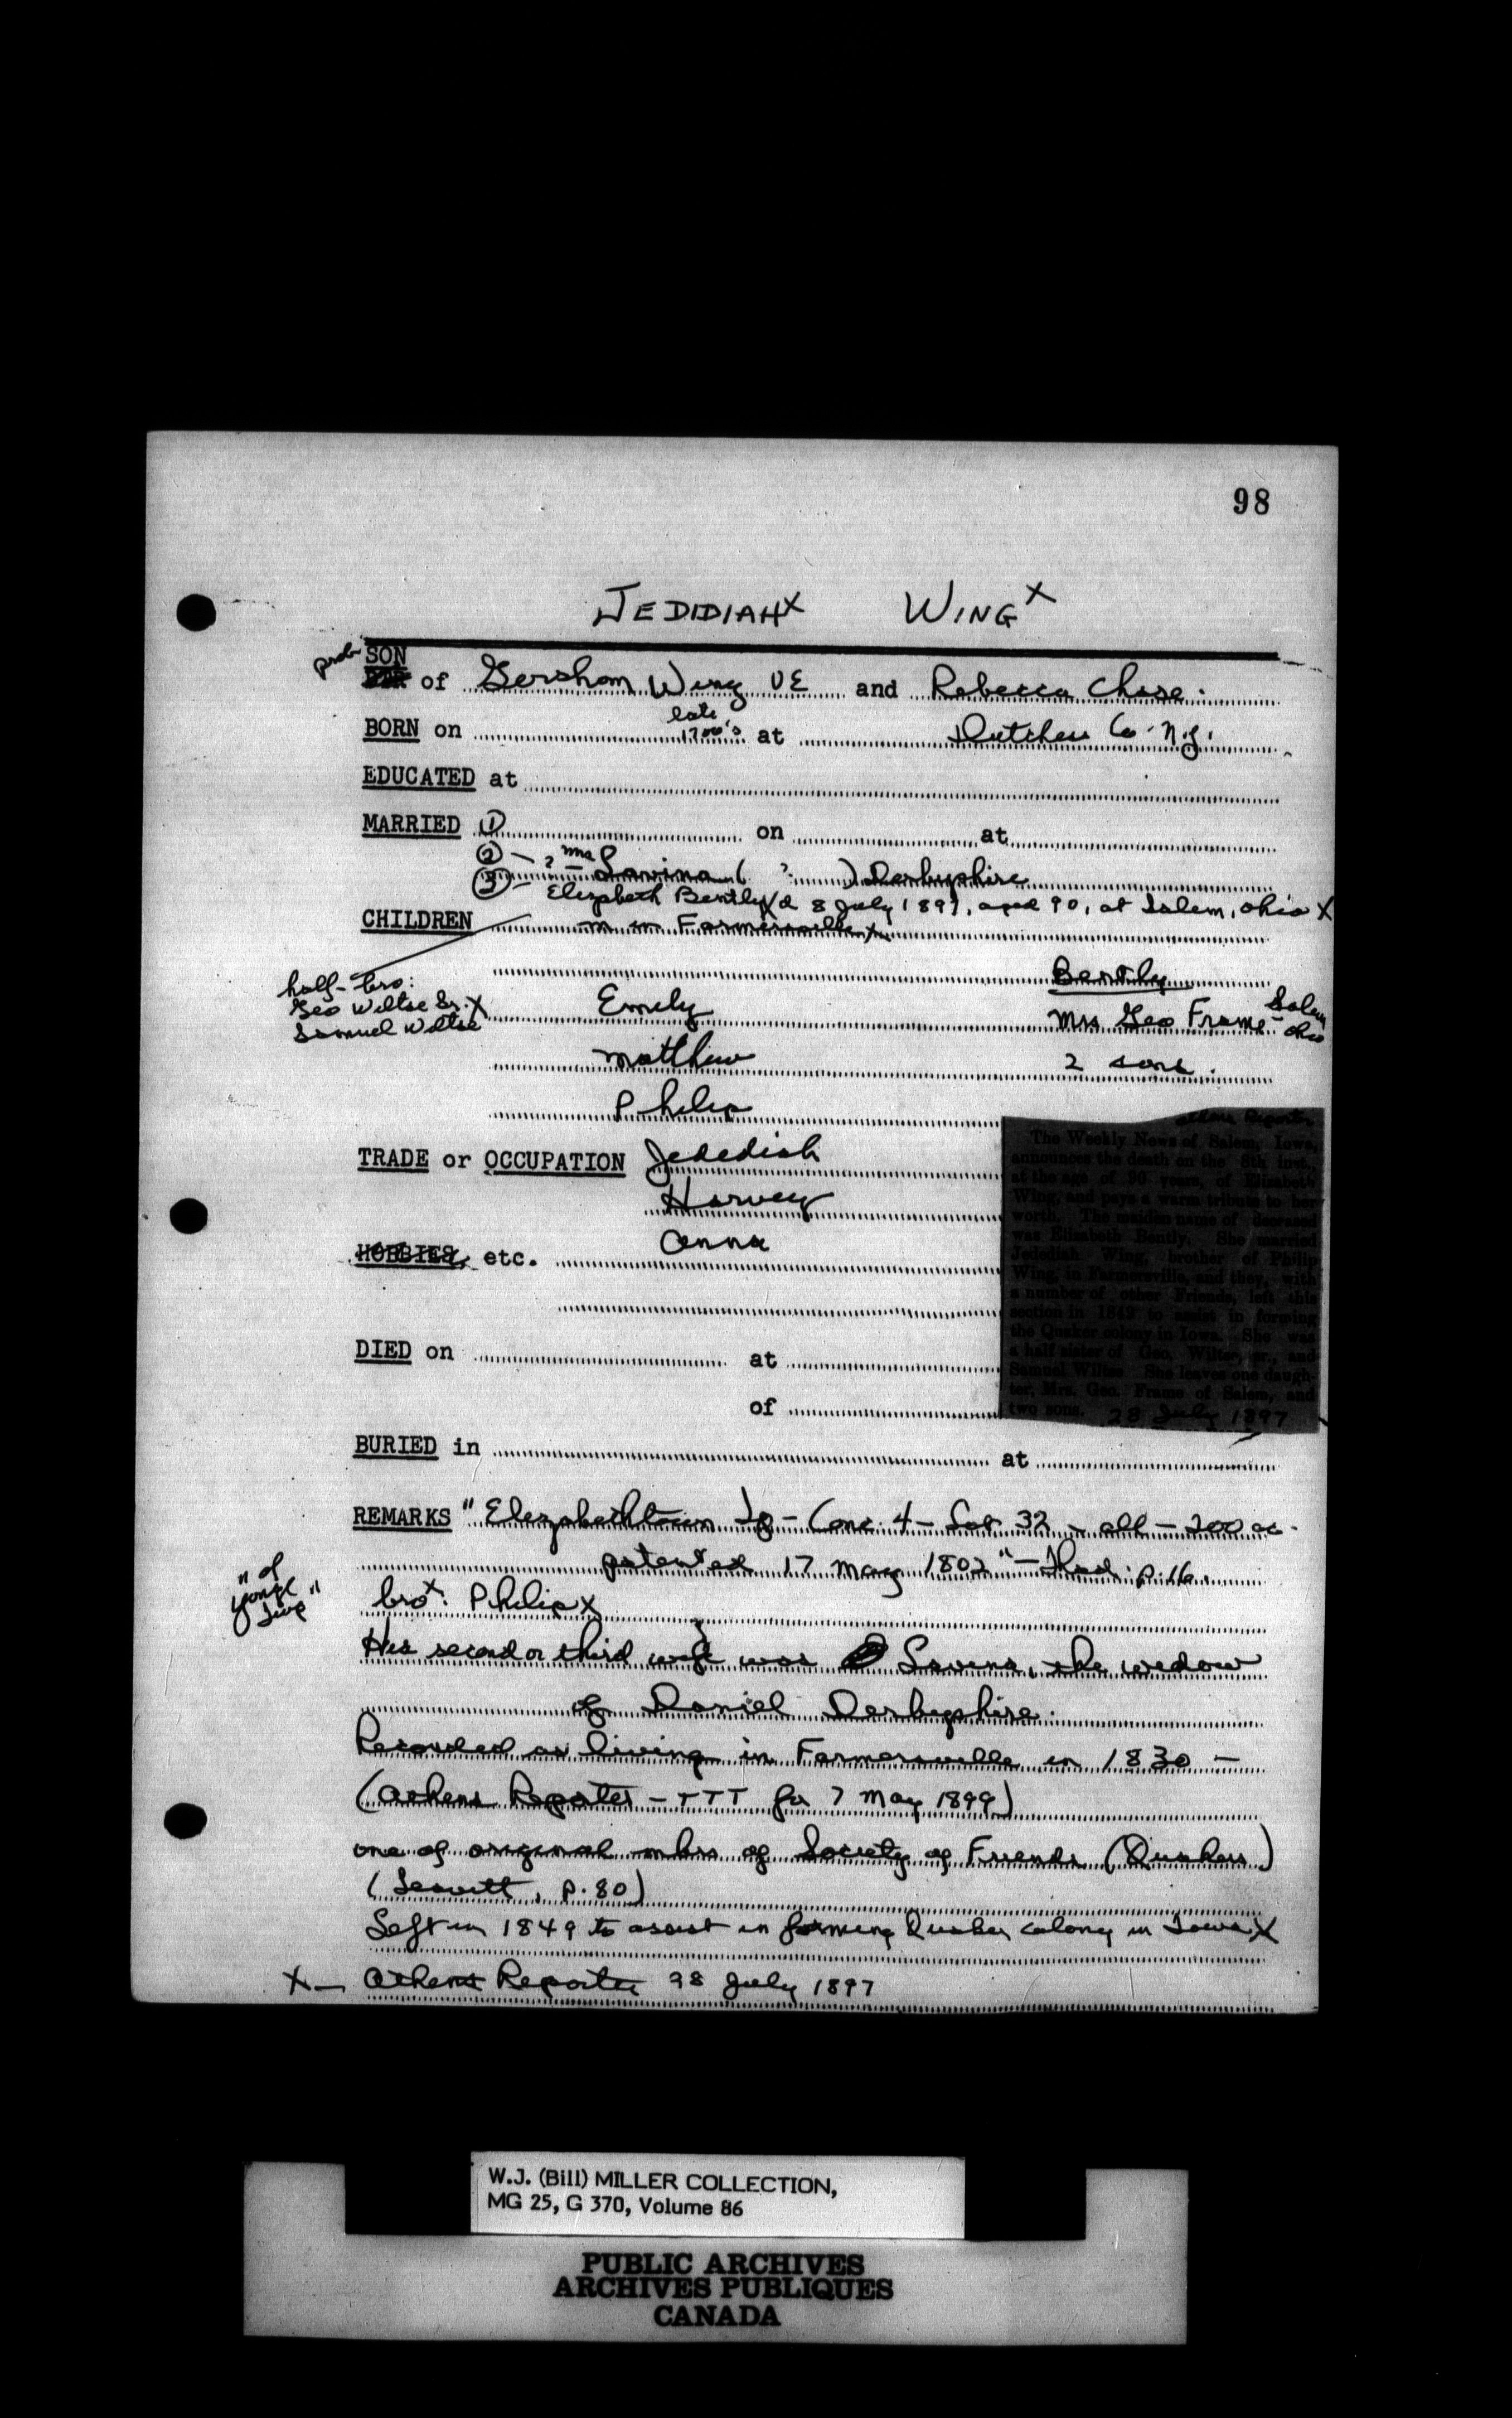 98
JEDIDIAH X WING X
prob SON
of Gersham Wing UE and Rebecca Chase.
BORN on late 1700's at Dutchess Co. N.Y.
EDUCATED at
MARRIED ① on at
② - ? - Mrs Lavina ( ? ) Derbyshire
③ - Elizabeth Bently X d 8 July 1897, aged 90, at Salem, Ohio X
m in Farmersville X
CHILDREN
half-bro:
Geo Wiltse Sr. X
Samuel Wiltse
Bently
Emily Mrs Geo Frame - Salem Ohio
Matthew 2 sons.
Philip
TRADE or OCCUPATION Jedediah
Harvey
HOBBIES, etc. Anna
Athens Reporter
The Weekly News of Salem, Iowa,
announces the death on the 8th inst.,
at the age of 90 years, of Elizabeth
Wing, and pays a warm tribute to her
worth. The maiden name of deceased
was Elizabeth Bently. She married
Jedediah Wing, brother of Philip
Wing, in Farmersville, and they, with
a number of other Friends, left this
section in 1849 to assist in forming
the Quaker colony in Iowa. She was
a half sister of Geo. Wiltse, sr., and
Samuel Wiltse She leaves one daugh-
ter, Mrs. Geo. Frame of Salem, and
two sons. 28 July 1897
DIED on at
of
BURIED in at
REMARKS "Elizabethtown Tp - Conc. 4 - Lot 32 - all - 200 ac.
patented 17 May 1802" - Thad: p.16.
"of Yonge Twp"
bro X: Philip X
His second or third wife was Lavina, the widow
of Daniel Derbyshire.
Recorded as living in Farmersville in 1830 -
(Athens Reporter - TTT for 7 May 1899)
one of original mbrs of Society of Friends (Quakers)
(Leavitt, p.80)
Left in 1849 to assist in forming Quaker colony in Iowa X
X - Athens Reporter 28 July 1897
W.J. (Bill) MILLER COLLECTION,
MG 25, G 370, Volume 86
PUBLIC ARCHIVES
ARCHIVES PUBLIQUES
CANADA